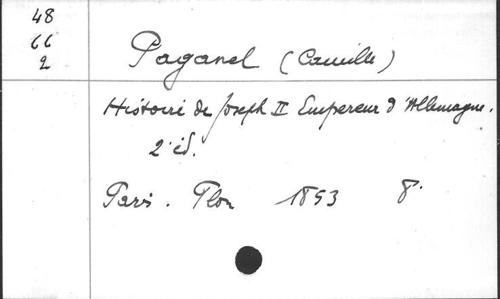 48
66
2
Paganel (Camille)
Histoire de Joseph II Empereur d'Allemagne.
2 éd.
Paris. Plon 1853 8°